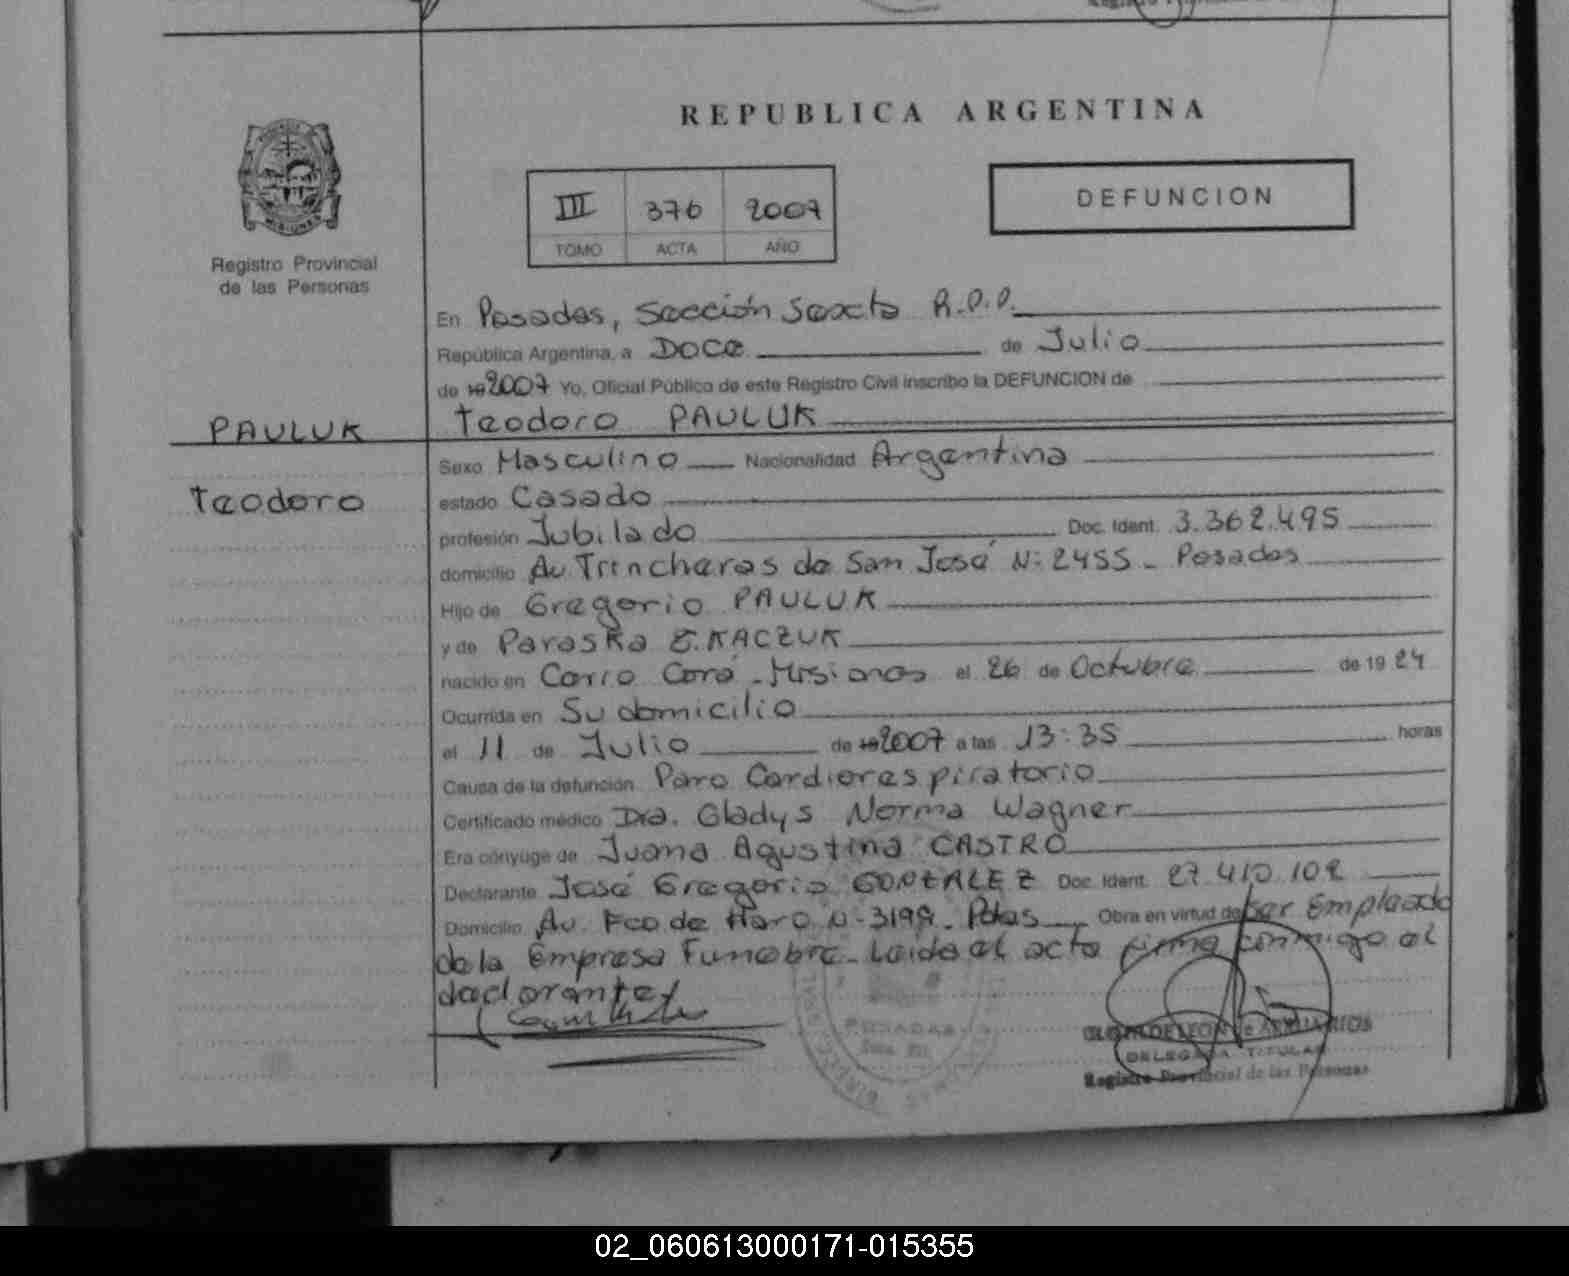 REPUBLICA ARGENTINA
MISIONES
Registro Provincial
de las Personas
III 376 2007
TOMO ACTA AÑO
DEFUNCION
En Posadas, Sección Sexta R.P.P.
República Argentina, a Doce de Julio
de 19 2007 Yo, Oficial Público de este Registro Civil inscribo la DEFUNCION de
Teodoro PAULUK
PAULUK
Teodoro
Sexo Masculino Nacionalidad Argentina
estado Casado
profesión Jubilado Doc. Ident. 3.362.495
domicilio Av. Trincheras de San José N: 2455 - Posadas
Hijo de Gregorio PAULUK
y de Paraska KACZUK
nacido en Cerro Corá - Misiones el 26 de Octubre de 19 24
Ocurrida en Su domicilio
el 11 de Julio de 19 2007 a las 13:35 horas
Causa de la defunción Paro Cardiorespiratorio
Certificado médico Dra. Gladys Norma Wagner
Era cónyuge de Juana Agustina CASTRO
Declarante José Gregorio GONZALEZ Doc. Ident. 27.410.102
Domicilio Av. Fco de Haro N- Pdas Obra en virtud de ser Empleado
de la Empresa Funebre - Leida el acta firma conmigo el
declarante
POSADAS
DELEGADA TITULAR
Registro Provincial de las Personas
02_060613000171-015355